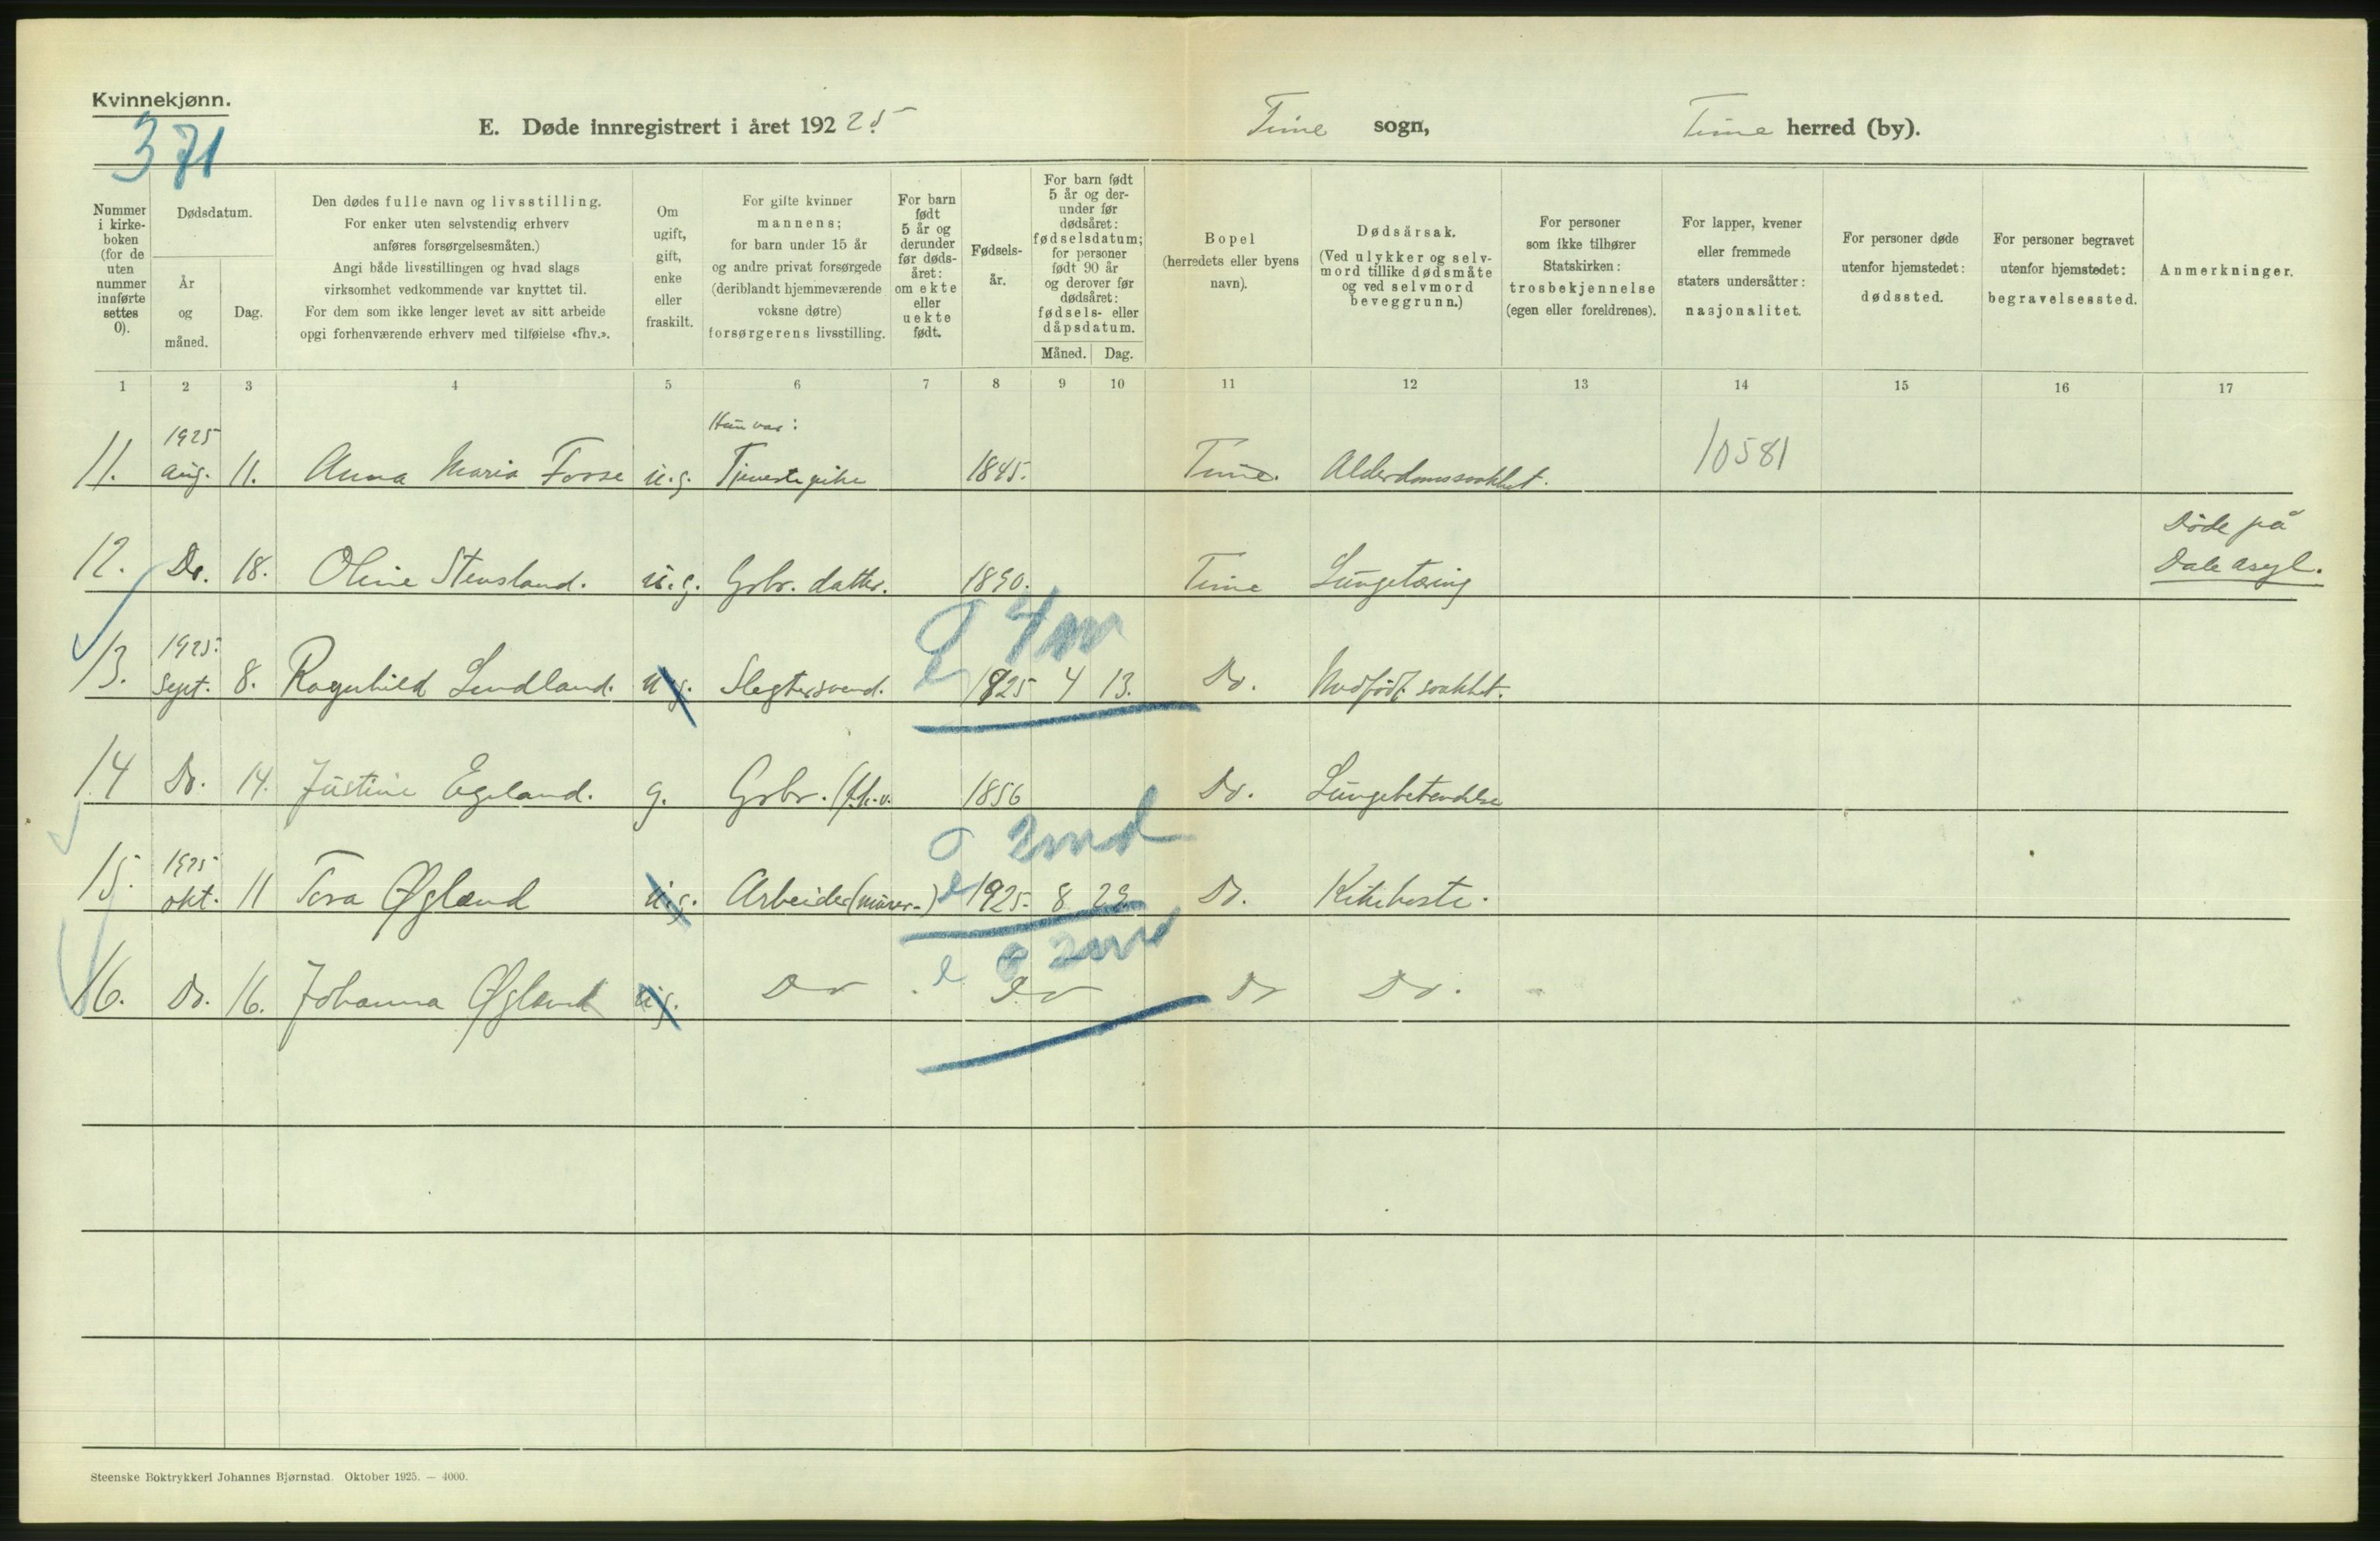 Kvinnekjønn.
371
E. Døde innregistrert i året 192 25 Time sogn, Time herred (by).
Nummer i kirke- boken (for de uten nummer innførte settes 0).
Dødsdatum.
År og måned.
Dag.
Den dødes fulle navn og livsstilling.
For enker uten selvstendig erhverv
anføres forsørgelsesmåten.)
Angi både livsstillingen og hvad slags
virksomhet vedkommende var knyttet til.
For dem som ikke lenger levet av sitt arbeide
opgi forhenværende erhverv med tilføielse «fhv.».
Om ugift, gift, enke eller fraskilt.
For gifte kvinner
mannens;
for barn under 15 år
og andre privat forsørgede
(deriblandt hjemmeværende
voksne døtre)
forsørgerens livsstilling.
For barn født 5 år og derunder før døds- året: om ekte eller uekte født.
Fødsels- år.
For barn født 5 år og der- under før dødsåret: fødselsdatum; for personer født 90 år og derover før dødsåret: fødsels- eller dåpsdatum.
Måned. Dag.
Bopel
(herredets eller byens
navn).
Dødsårsak.
(Ved ulykker og selv-
mord tillike dødsmåte
og ved selvmord
beveggrunn.)
For personer
som ikke tilhører
Statskirken:
trosbekjennelse
(egen eller foreldrenes).
For lapper, kvener
eller fremmede
staters undersåtter:
nasjonalitet.
For personer døde
utenfor hjemstedet:
dødssted.
For personer begravet
utenfor hjemstedet:
begravelsessted.
Anmerkninger.
1 2 3 4 5 6 7 8 9 10 11 12 13 14 15 16 17
1925 Hun var:
11. Aug. 11. Anna Maria Fosse u.g. Tjenestepike 1845. Time. Alderdomssvakhet. 10581
Døde på
12. Do. 18. Oline Stensland. u.g. Grbr. datter. 1890. Time Lungetæring Dale asyl.
1925. 4 m
13. Sept. 8. Ragnhild Lendland. u.g. Slegtersvend. e 1925 4 13. Do. Medfødt svakhet.
14 Do. 14. Justine Egeland. g. Grbr. (fh.v. 1856 Do. Lungebetendelse
1925 2 md
15. okt. 11 Tora Øgland u.g. Arbeider (murer-) e 1925. 8 23. Do. Kikhoste.
2 md
16. Do. 16. Johanna Øgland u.g. Do e Do Do Do.
Steenske Boktrykkeri Johannes Bjørnstad. Oktober 1925. — 4000.